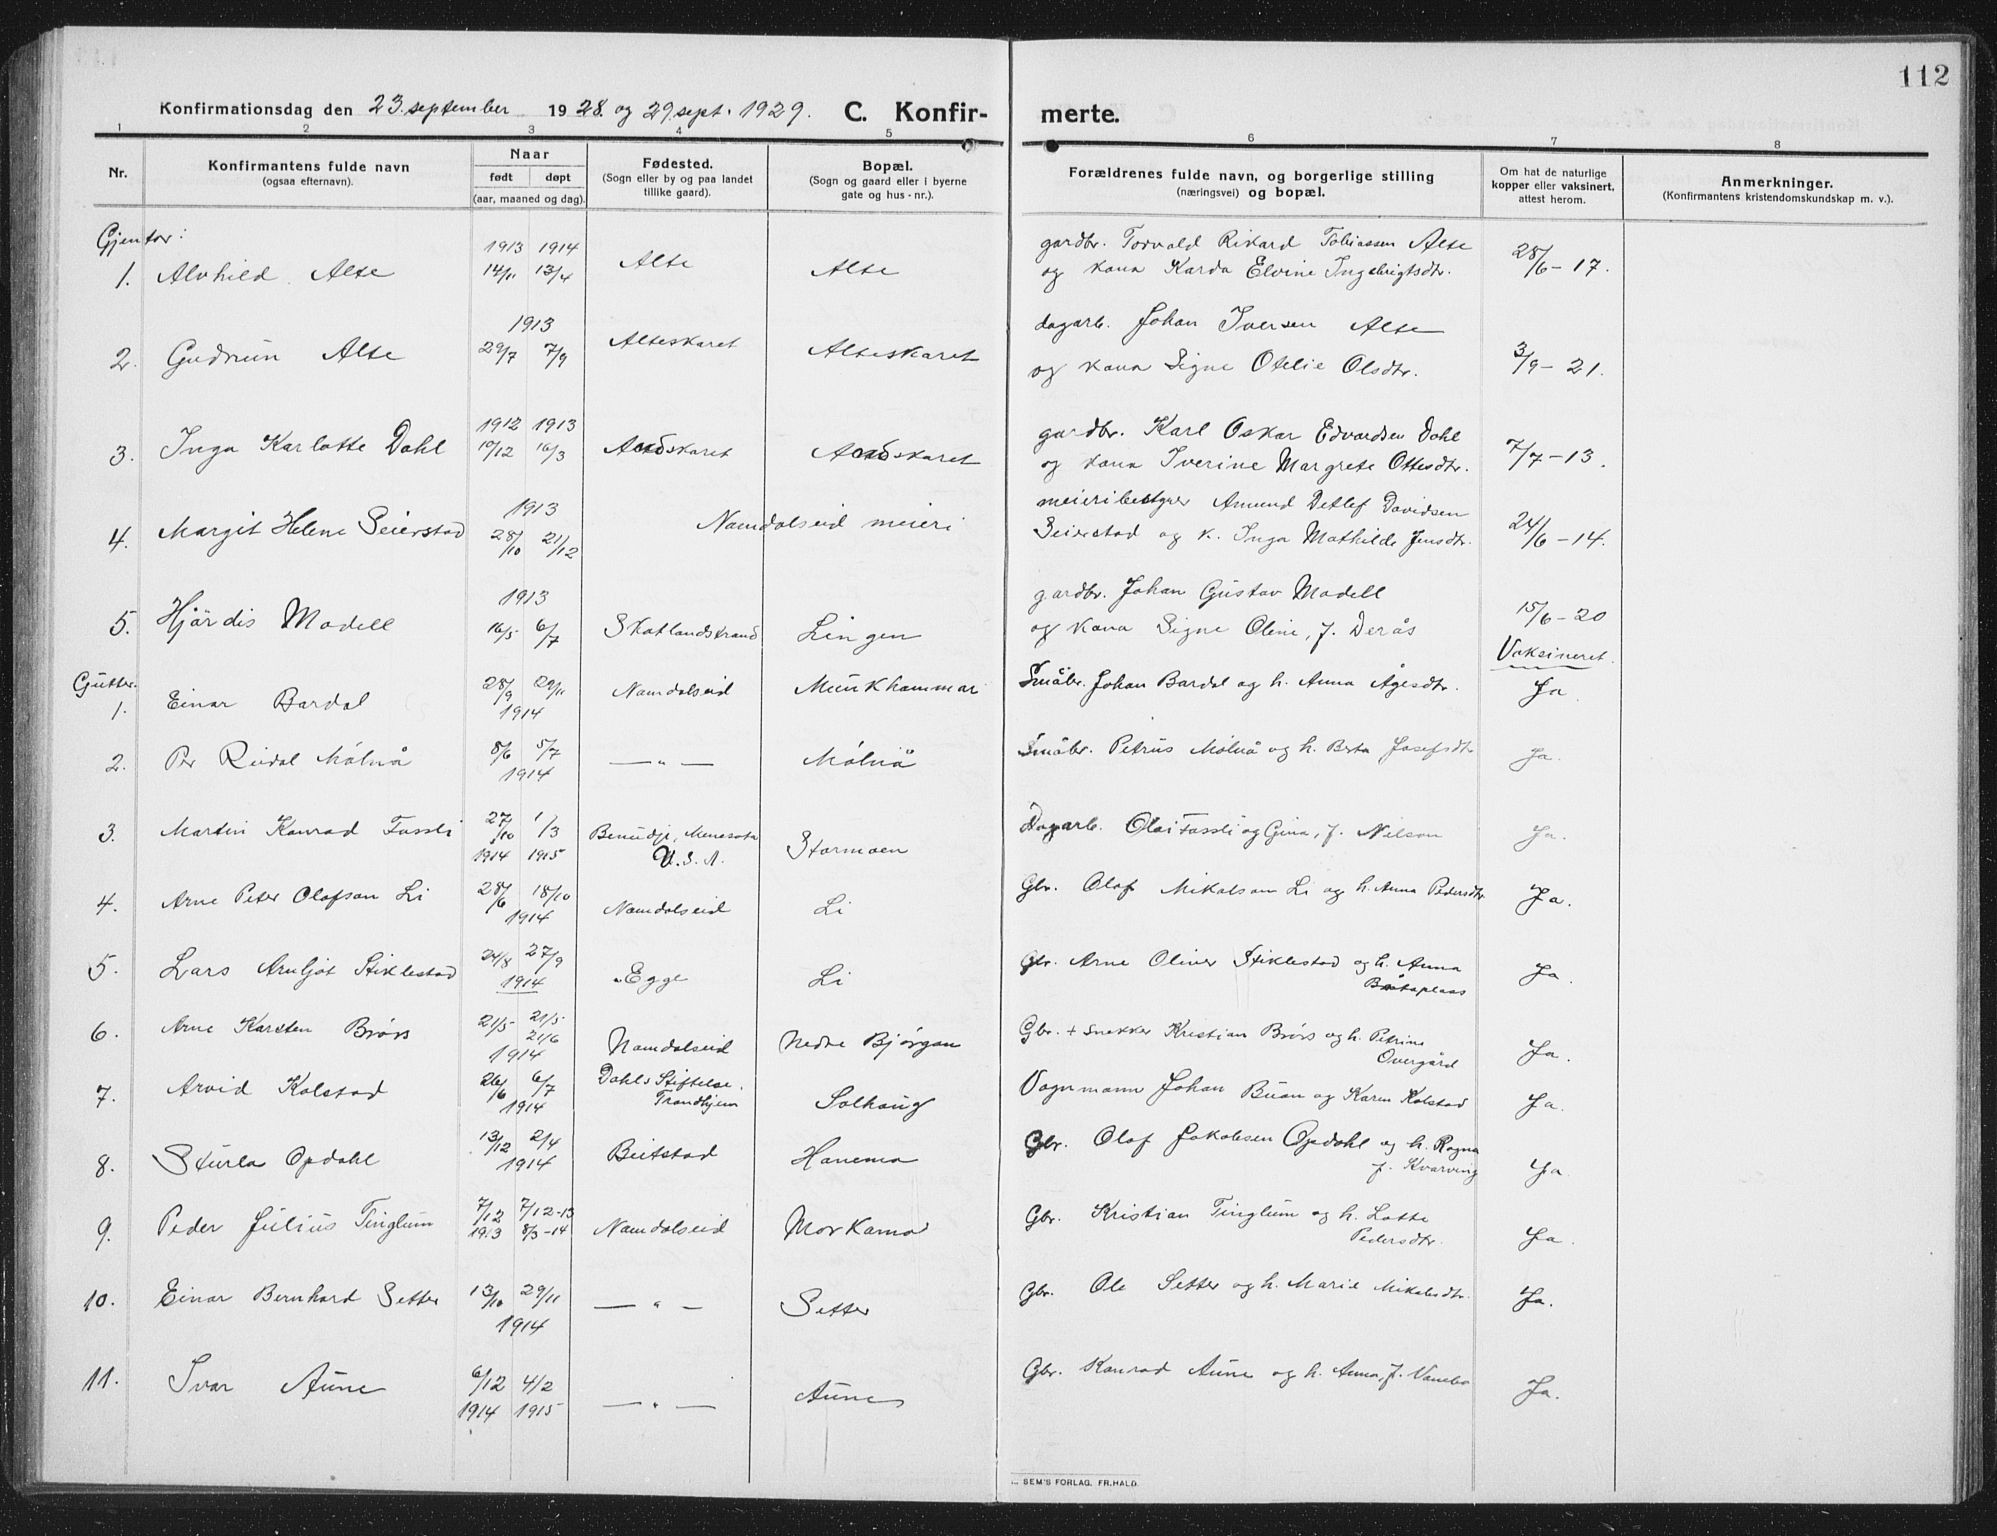 112
Konfirmationsdag den 23. september 1928 og 29. sept. 1929. C. Konfir- merte.
1 2 3 4 5 6 7 8
Nr.
Konfirmantens fulde navn
(ogsaa efternavn).
Naar
født døpt
(aar, maaned og dag).
Fødested.
(Sogn eller by og paa landet
tillike gaard).
Bopæl.
(Sogn og gaard eller i byerne
gate og hus-nr.).
Forældrenes fulde navn, og borgerlige stilling
(næringsvei) og bopæl.
Om hat de naturlige
kopper eller vaksinert,
attest herom.
Anmerkninger.
(Konfirmantens kristendomskundskap m. v.).
Gjenter:
1. Alvhild Alte 1913 14/11 1914 13/4 Alte Alte gardbr. Torvald Rikard Tobiassen Alte
og kona Karda Elvine Ingebrigtsdtr. 28/6-17.
2. Gudrun Alte 1913 29/7 7/9 Alteskaret Alteskaret dagarb. Johan Iversen Alte
og kona Signe Otelie Olsdtr. 3/9-21.
3. Inga Karlotte Dahl 1912 19/12 1913 16/3 gardbr. Karl Oskar Edvardsen Dahl
og kona Iverine Margrete Ottesdtr. 7/7-13.
4. Margit Helene Seierstad 1913 28/10 21/12 Namdalseid meieri meieribestyrer Amund Detlef Davidsen
Seierstad og k. Inga Mathilde Jensdtr. 24/6-14.
5. Hjördis Modell 1913 16/5 6/7 Skotlandstrand Lingen gardbr. Johan Gustav Modell
og kona Signe Oline, f. Derås 15/6-20
Vaksineret.
Gutter:
1. Einar Bardal 28/9 29/11 1914 Namdalseid Munkhammar Småbr. Johan Bardal og h. Anna Ågesdtr. Ja
2. Per Reidal Mölnå 8/6 5/7 1914 — " — Mölnå Småbr. Petrus Mölnå og h. Berta Josefsdtr Ja.
3. Martin Konrad Fossli 27/10 1914 1/3 1915 Bemidji, Menesota
U.S.A. Stormoen Dagarb. Olai Fossli og Gina, f. Nilson Ja.
4. Arne Peter Olafson Li 28/6 18/10 1914 Namdalseid Li Gbr. Olaf Mikalson Li og h. Anna Pedersdtr Ja.
5. Lars Arnljot Stiklestad 24/8 27/9 1914 Egge Li Gbr. Arne Oliver Stiklestad og h. Anna
Ja.
6. Arne Karsten Brörs 21/5 21/5 21/6 1914 Namdalseid Nedre Bjørgan Gbr. + snekker Kristian Brörs og h. Petrine
Overgård Ja.
7. Arvid Kolstad 26/6 6/7 1914 Dahls Stiftelse.
Trondhjem Solhaug Vognmann Johan Buan og Karen Kolstad Ja.
8. Sturla Opdahl 13/12 2/4 1914 Beitstad Hanemo Gbr. Olaf Jakobsen Opdahl og h. Ragna
f. Kvarving Ja
9. Peder Julius Tinglum 7/12 1913 7/12-13 8/3-14 Namdalseid Morkamo Gbr. Kristian Tinglum og h. Lotte
Pedersdtr. Ja.
10. Einar Bernhard Setter 13/10 29/11 1914 — " — Setter Gbr. Ole Setter og h. Marie Mikalsdtr. Ja.
11. Ivar Aune 6/12 1914 4/2 1915 — " — Aune Gbr. Konrad Aune og h. Anna, f. Vanebo Ja.
SEM'S FORLAG, FR.HALD.